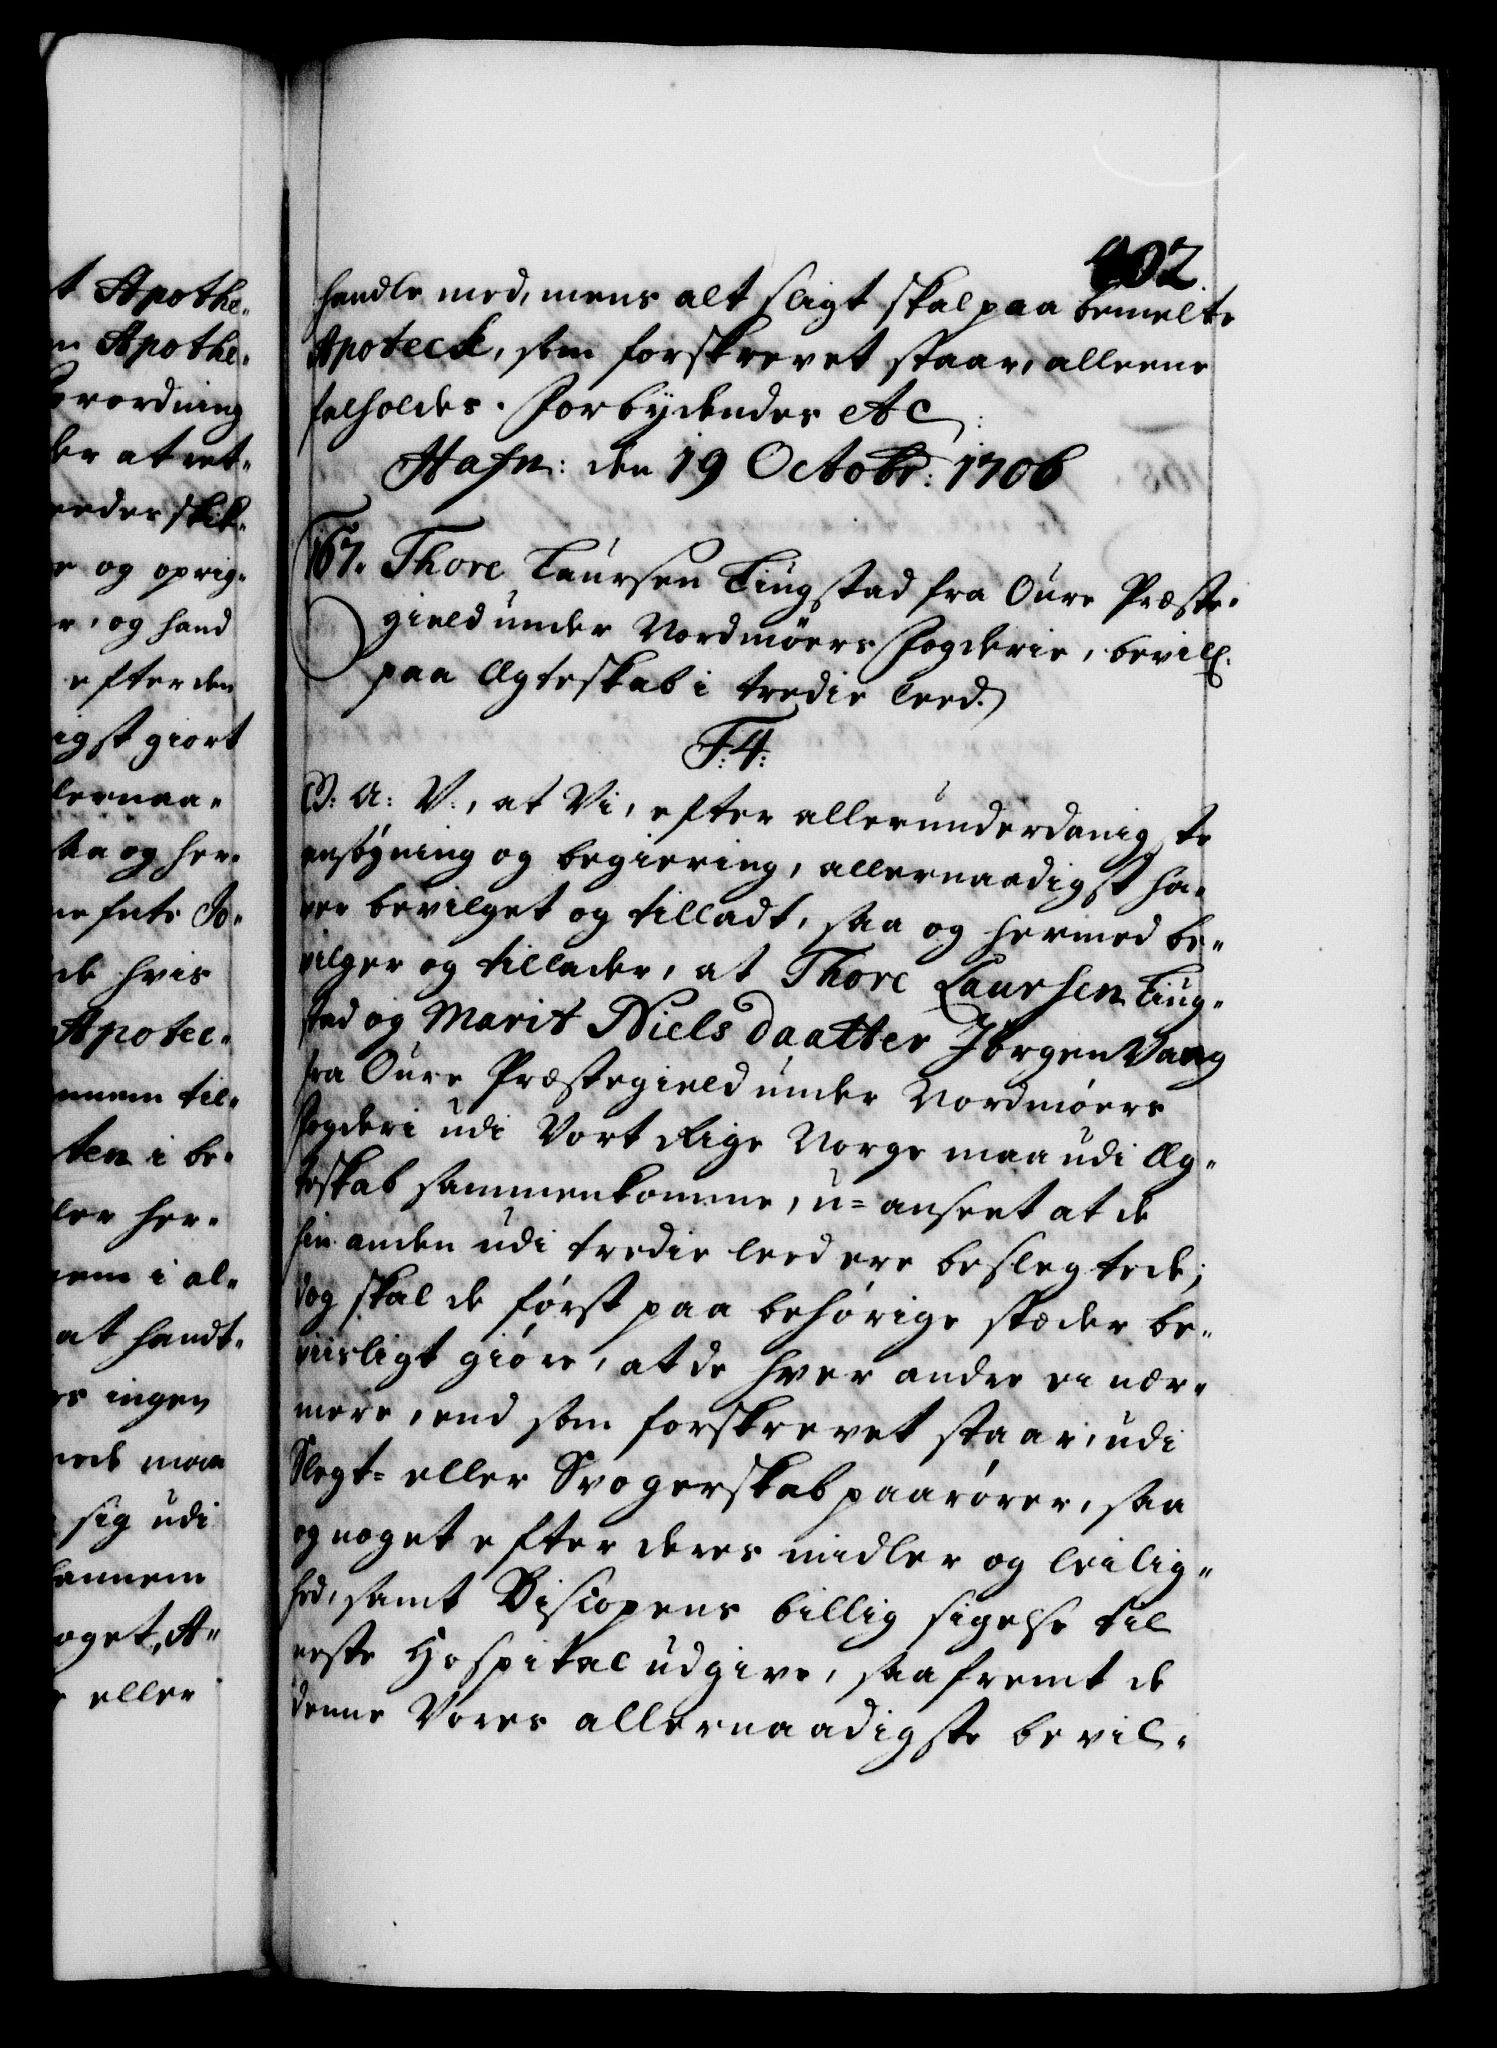 402
handle med, mens alt sligt skal paa bemelte
Apoteck, som forskrevet staar, alleene
falholdes. Forbydendes etc:
Hafn: den 19 Octobr: 1706
167. Thore Laursen Tingstad fra Oure Præste-
gield under Nordmøers Fogderie, bevill:
paa Ægteskab i tredie leed.
F: 4:
G: A: V:, at Vi, efter allerunderdanigste
ansøgning og begiering, allernaadigst ha-
ver bevilget og tilladt, saa og hermed be-
vilger og tillader, at Thore Laursen Ting-
stad og Marit Niels daatter Jørgen Vaag
fra Oure Præstegield under Nordmøers
Fogderi udi Vort Rige Norge maa udi Æg-
teskab sammenkomme, u=anseet at de
hin anden udi tredie leed ere beslegtede;
dog skal de først paa behørige stæder be-
viisligt giøre, at de hver andre ei nær-
mere, end som forskrevet staar, udi
Slegt= eller Svogerskab paarører, saa
og noget efter deres midler og leilig-
hed, samt Biscopens billig sigelse til
neste Hospital udgive, saafremt de
denne Vores allernaadigste bevil-
t Apothe-
m Apothe-
Forordning
der at ret-
skik-
og oprig-
og hand
efter den
igst giort
lernaa-
saa og her-
Jo-
de hvis
Apotec-
ennem til-
ten i be-
ler her-
nem i al-
at handt-
es ingen
mede maa
sig udi
hannem
noget, A-
eller